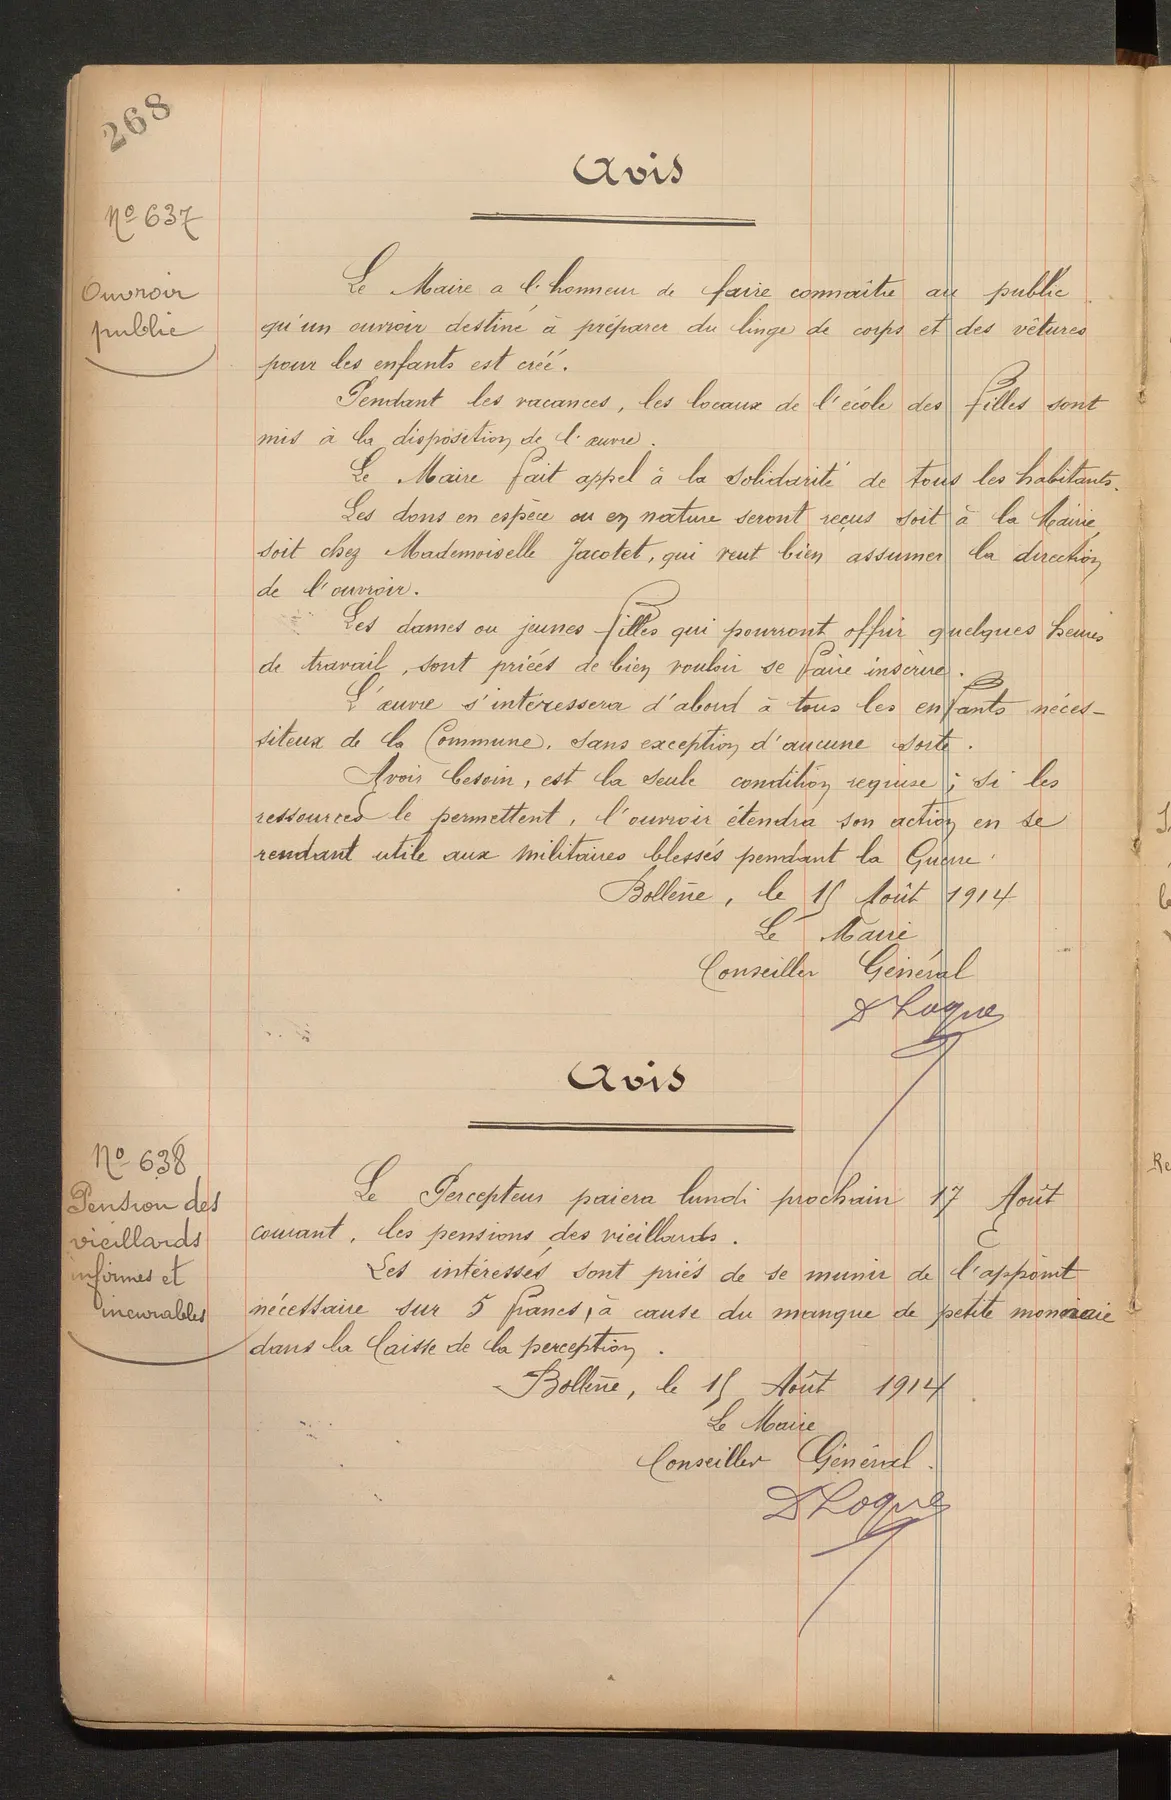 268
Avis
No 637
Ouvroir
public
Le Maire a l'honneur de faire connaître au public
qu'un ouvroir destiné à préparer du linge de corps et des vêtures
pour les enfants est créé.
Pendant les vacances, les locaux de l'école des filles sont
mis à la disposition de l'œuvre.
Le Maire fait appel à la solidarité de tous les habitants.
Les dons en espèce ou en nature seront reçus soit à la Mairie,
soit chez Mademoiselle Jacotet, qui veut bien assumer la direction
de l'ouvroir.
Les dames ou jeunes filles qui pourront offrir quelques heures
de travail, sont priées de bien vouloir se faire inscrire.
L'œuvre s'intéressera d'abord à tous les enfants néces-
siteux de la Commune, sans exception d'aucune sorte.
Avoir besoin, est la seule condition requise ; si les
ressources le permettent, l'ouvroir étendra son action en se
rendant utile aux militaires blessés pendant la Guerre.
Bollène, le 15 Août 1914
Le Maire
Conseiller Général
D Loque
Avis
No 638
Pension des
vieillards
infirmes et
incurables
Le Percepteur paiera lundi prochain 17 Août
courant, les pensions des vieillards.
Les intéressés sont priés de se munir de l'appoint
nécessaire sur 5 francs, à cause du manque de petite monnaie
dans la Caisse de la perception.
Bollène, le 15 Août 1914
Le Maire
Conseiller Général.
D Loque